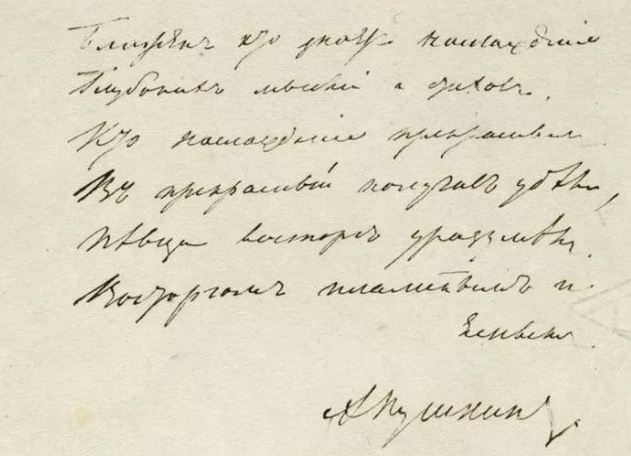 Блаженъ кто знаетъ наслажденіе
Глубокихъ мыслей и стиховъ,
Кто наслажденіе прекраснымъ
Въ прекрасный получилъ удѣлъ,
Пѣвца восторгъ уразумѣлъ
Восторгомъ пламеннымъ и
яснымъ.
А Пушкинъ